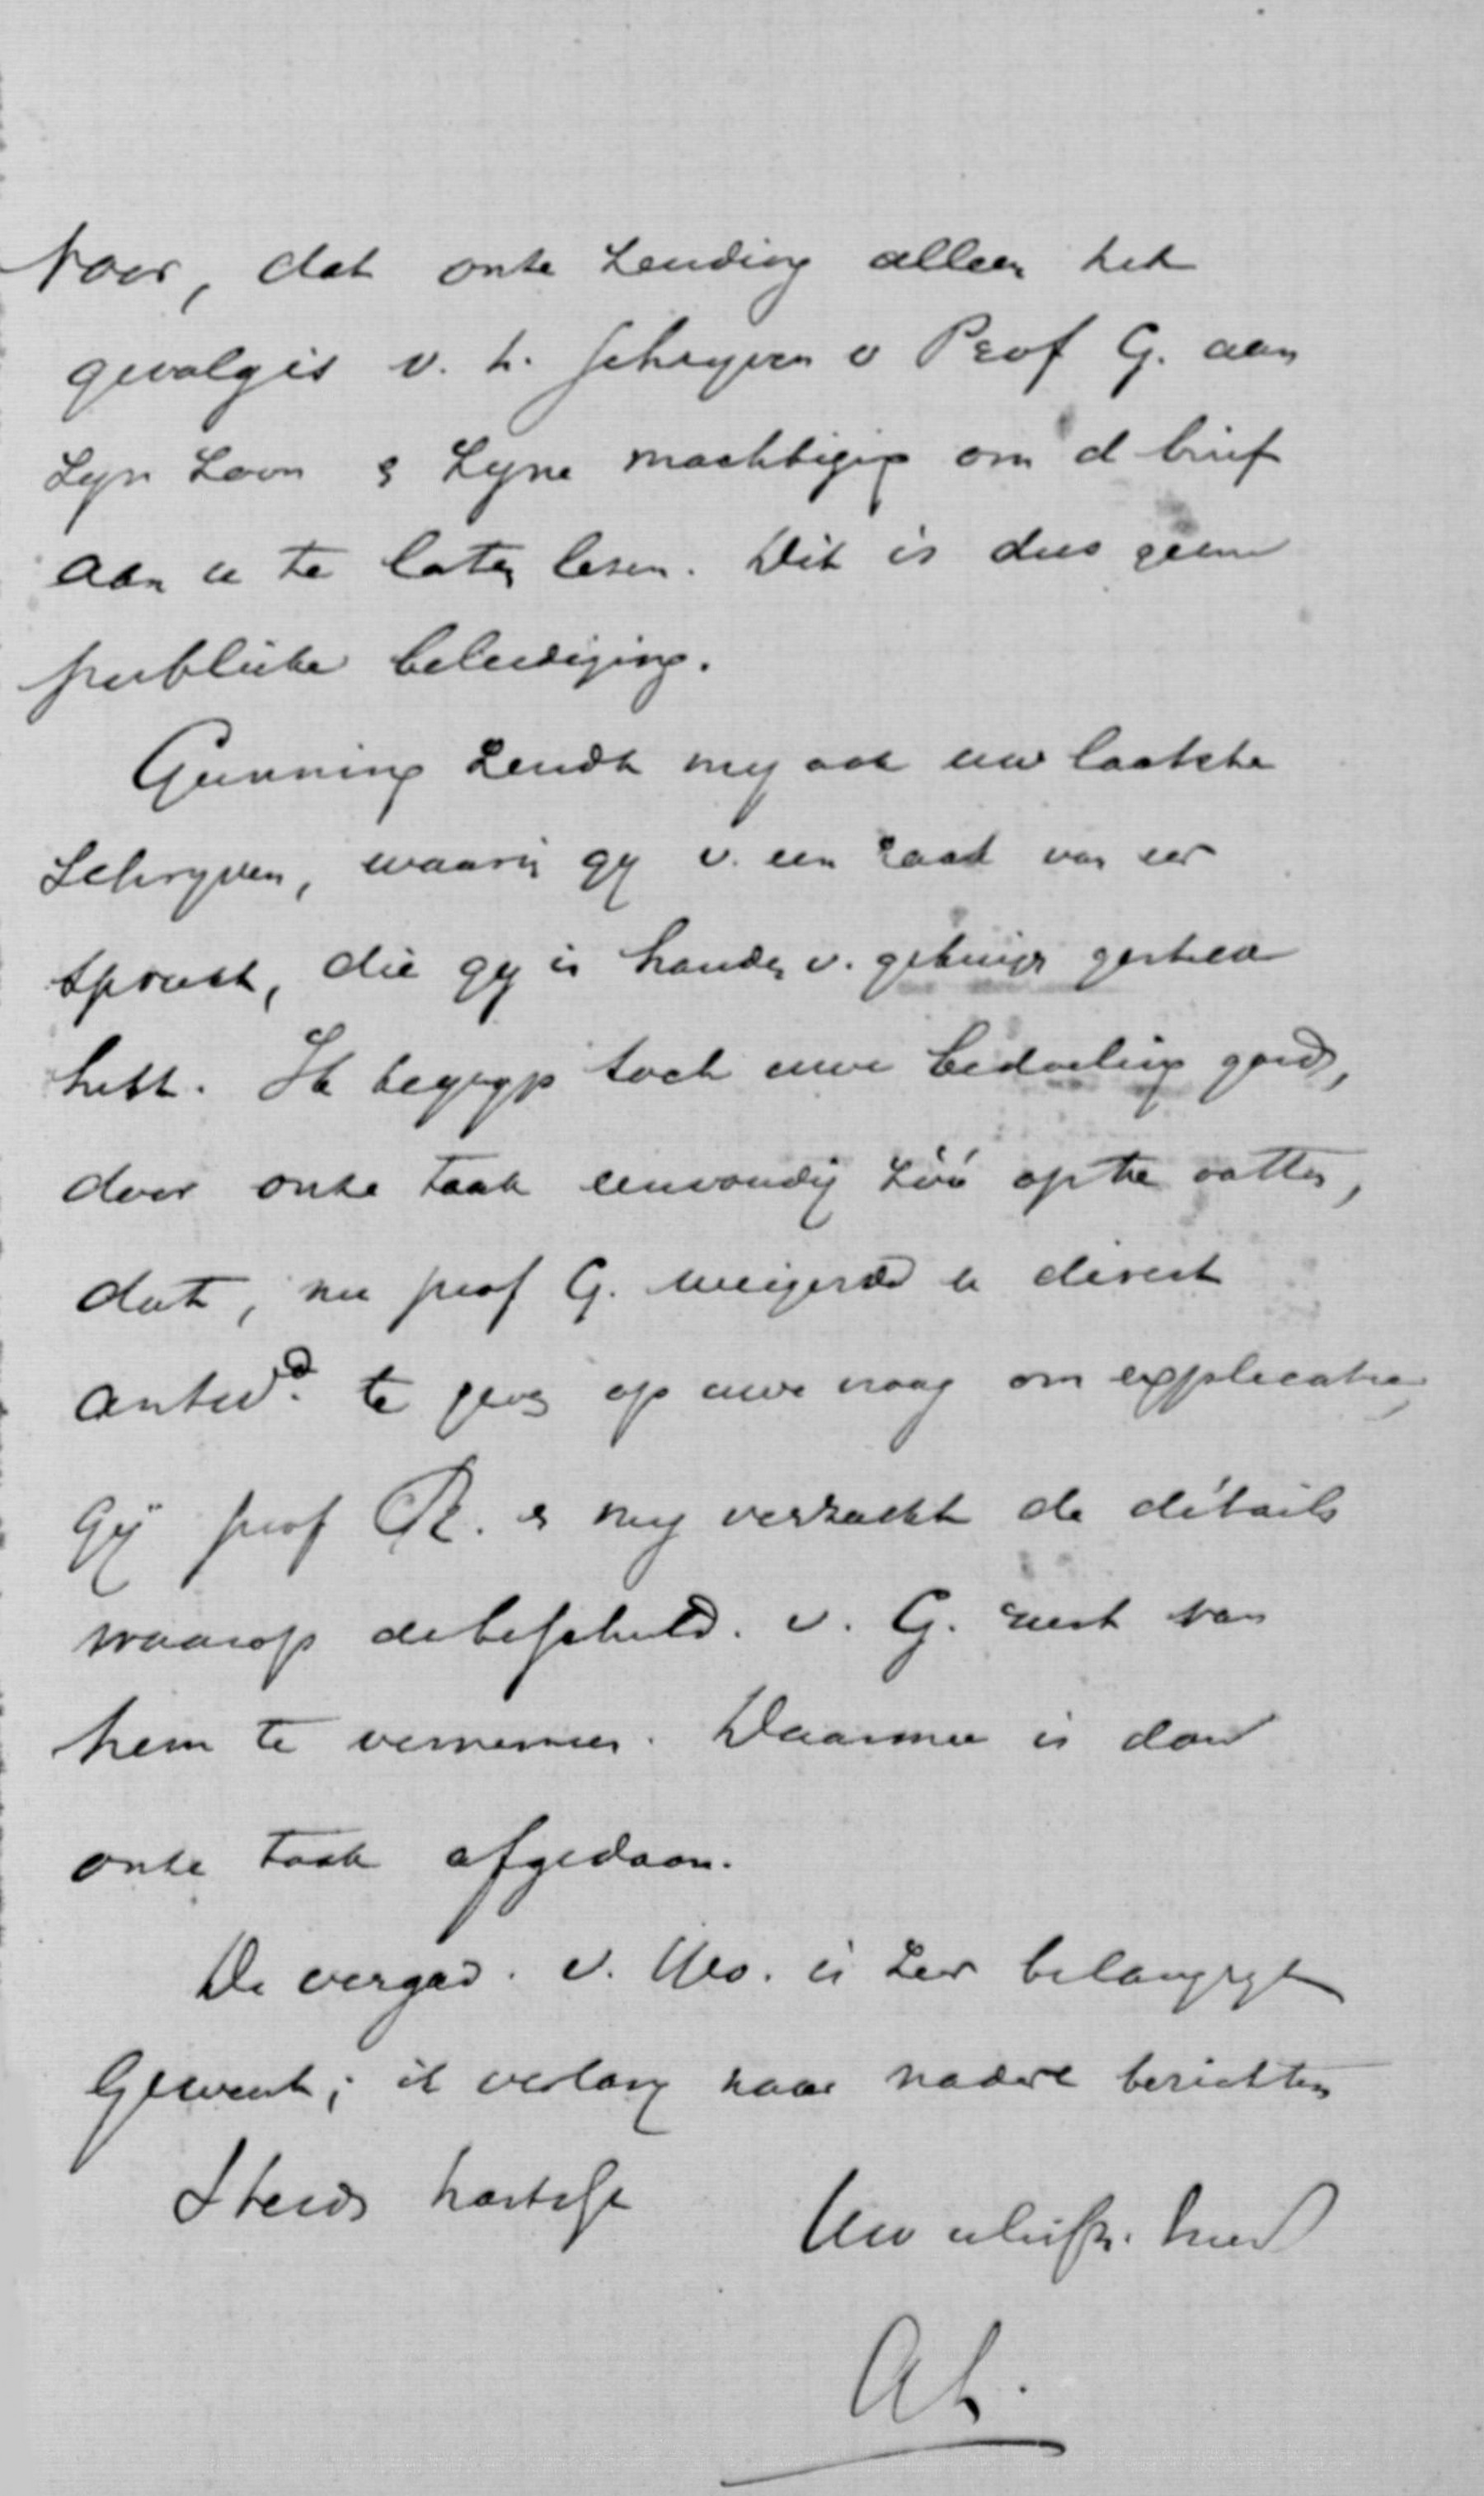 voor, dat onze zending alleen het
gevolg is v. h. schrijven v Prof G. aan
zyn zoon & zyne machtiging om d brief
aan u te laten lezen. Dit is dus geene
publieke beleediging.
Gunning zendt my ook uw laatste
schryven, waarin gy v. een raad van eer
spreekt, die gy in handen v. getuigen gesteld
hebt. Ik begryp toch uwe bedoeling goed,
door onze taak eenvoudig zóó op te vatten,
dat, nu prof G. weigerde u direct
antwd. te geven op uwe vraag om explicatie,
Gij prof R. & my verzocht de détails
waarop de beschuld. v. G. rust van
hem te vernemen. Daarmee is dan
onze taak afgedaan.
De vergad. v. Mo. is zeer belangryk
Geweest; ik verlang naar nadere berichten
Steeds hartelyk
Uw
Ah.